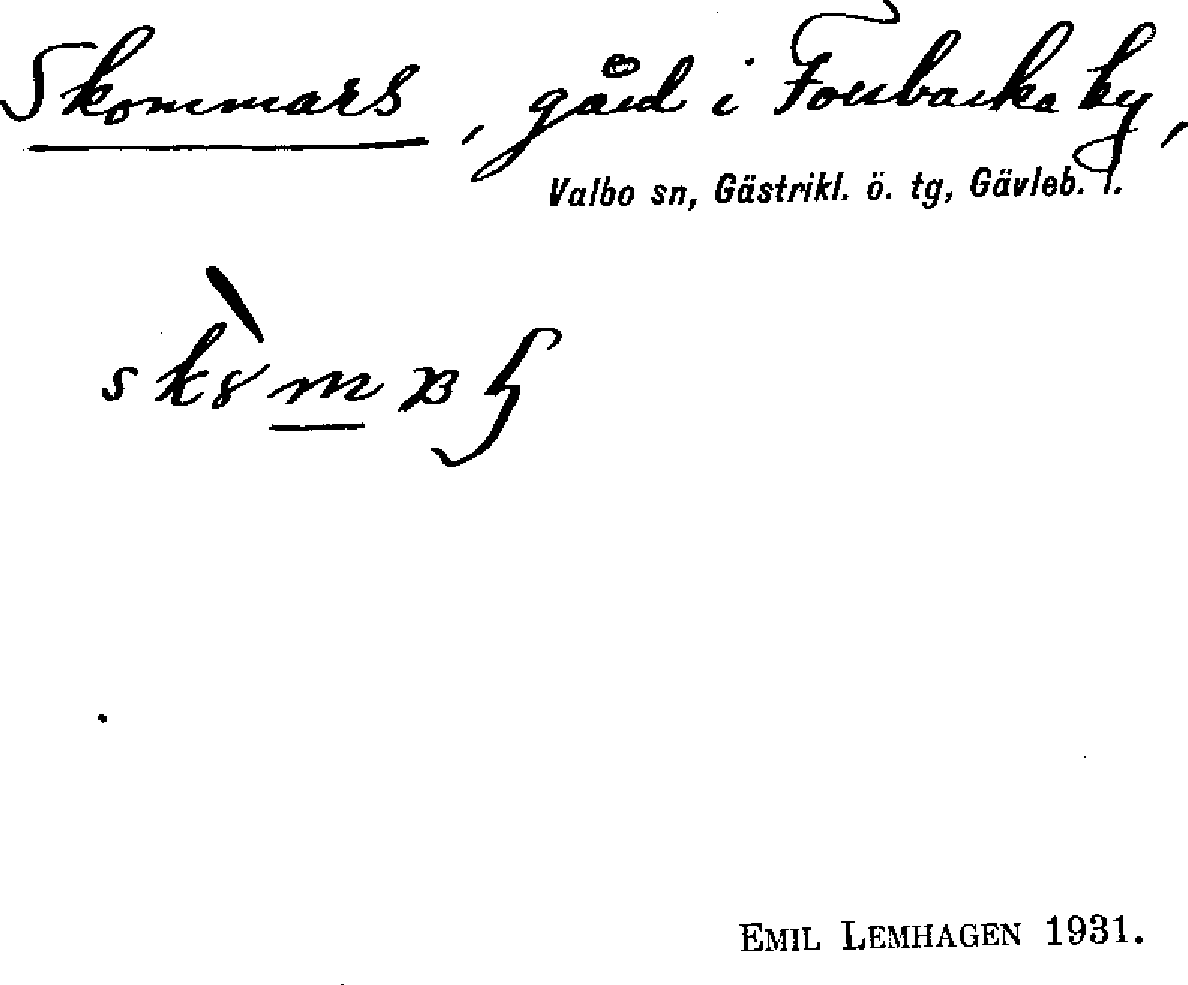 Skommars, gård i Forsbacka by,
Valbo sn, Gästrikl. ö. tg, Gävleb. l.
EMIL LEMHAGEN 1931.